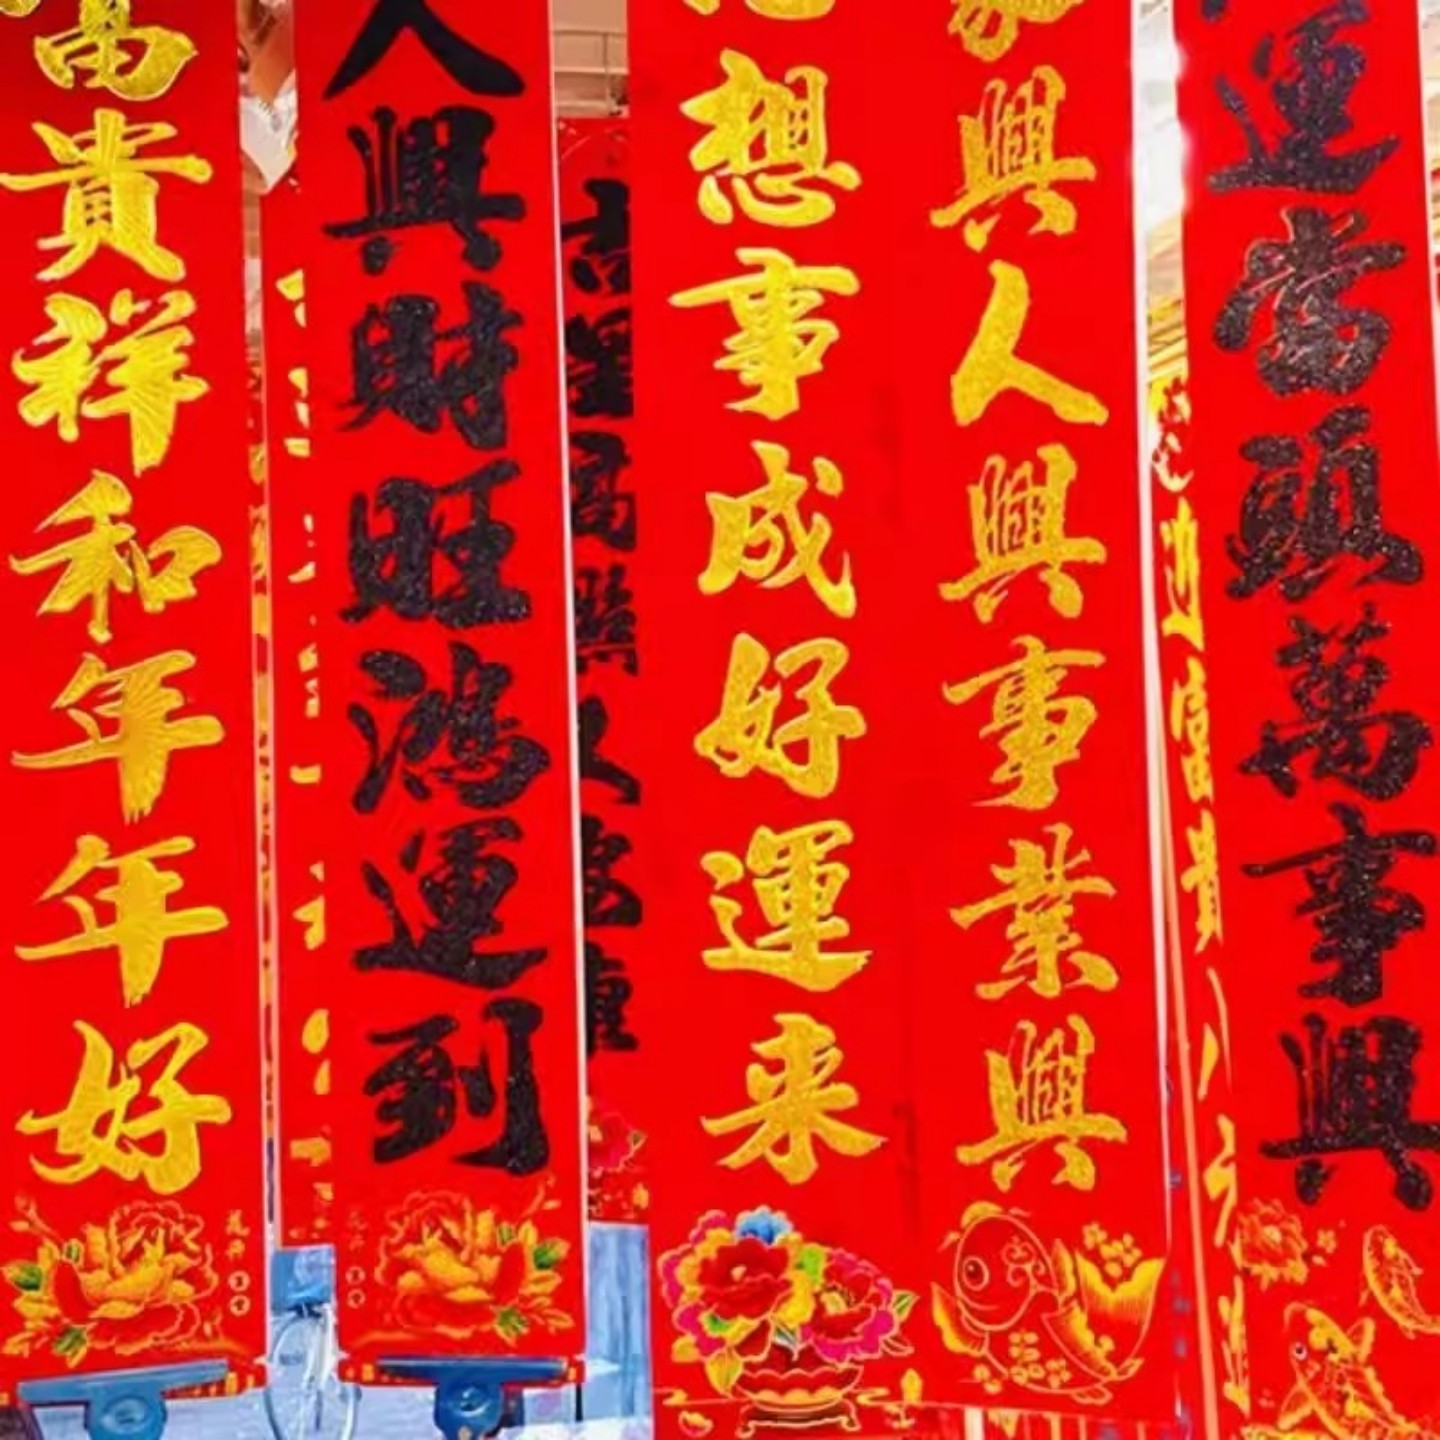 運當頭萬事興
家興人興事業興
想事成好運来
人興財旺鴻運到
富貴祥和年年好